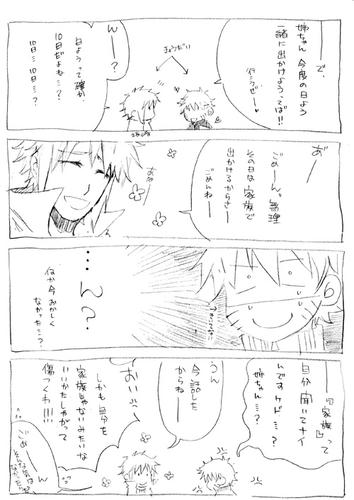 ーで、
姉ちゃん 今度の日よう
一緒に出かけようってば!!
行こうぜー♥
きょうだい
んー?
日ようって確か
10日だよも…?
10日…10日…?
あー
ごめーん。無理
その日は家族で
出かけるからさー
ごめんねー
…ん?
何か今おかしく
なかった…?
ー『家族』って
自分 聞いてナイ
んですケド…?
姉ちゃん…?
うん
今話した
からねー
おいい
しかも自分を
家族じゃないみたいな
いいかたしやがって
傷つくわ!!!
ごめーん